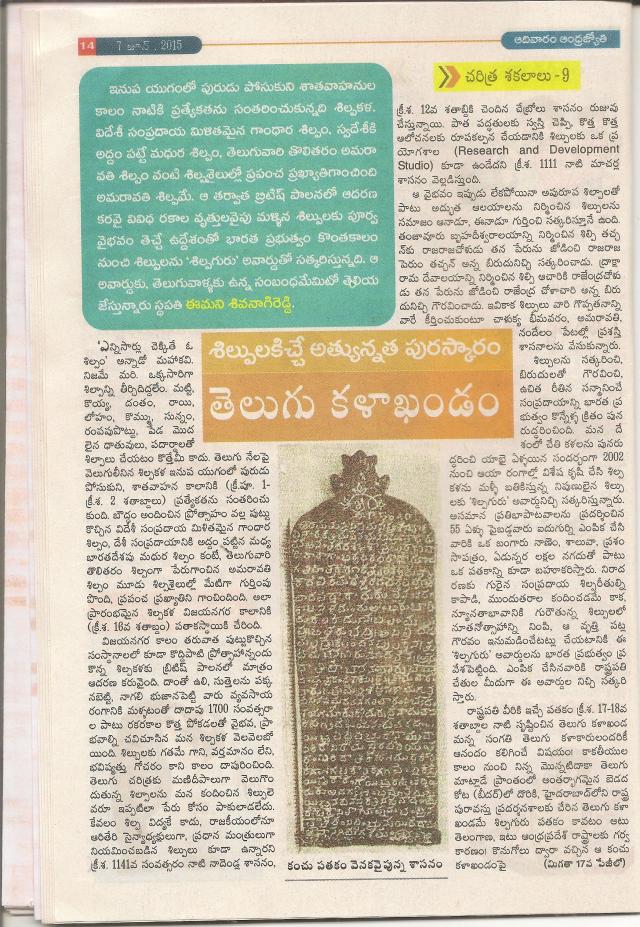 14
7 జూన్, 2015
ఆదివారం ఆంధ్రజ్యోతి
చరిత్ర శకలాలు -9
ఇనుప యుగంలో పురుడు పోసుకుని శాతవాహనుల
కాలం నాటికి ప్రత్యేకతను సంతరించుకున్నది శిల్పకళ.
విదేశీ సంప్రదాయ మిళితమైన గాంధార శిల్పం, స్వదేశీకి
అద్దం పట్టే మధుర శిల్పం, తెలుగువారి తొలితరం అమరా
వతి శిల్పం వంటి శిల్పశైలుల్లో ప్రపంచ ప్రఖ్యాతిగాంచింది
అమరావతి శిల్పమే. ఆ తర్వాత బ్రిటిష్ పాలనలో ఆదరణ
కరవై వివిధ రకాల వృత్తులవైపు మళ్ళిన శిల్పులకు పూర్వ
వైభవం తెచ్చే ఉద్దేశంతో భారత ప్రభుత్వం కొంతకాలం
నుంచి శిల్పులను 'శిల్పగురు' అవార్డుతో సత్కరిస్తున్నది. ఆ
అవార్డుకు, తెలుగువాళ్ళకు ఉన్న సంబంధమేమిటో తెలియ
జేస్తున్నారు స్థపతి ఈమని శివనాగిరెడ్డి.
శిల్పులకిచ్చే అత్యున్నత పురస్కారం
తెలుగు కళాఖండం
'ఎన్నిసార్లు చెక్కితే ఓ
శిల్పం' అన్నాడో మహాకవి.
నిజమే మరి. ఒక్కసారిగా
శిల్పాన్ని తీర్చిదిద్దలేం. మట్టి,
కొయ్య, దంతం, రాయి,
లోహం, కొమ్ము, సున్నం,
రంపపుపొట్టు, పేడ మొద
లైన ధాతువులు, పదార్థాలతో
శిల్పాలు చేయటం కొత్తేమీ కాదు. తెలుగు నేలపై
వెలుగులీనిన శిల్పకళ ఇనుప యుగంలో పురుడు
పోసుకుని, శాతవాహన కాలానికి (క్రీ.పూ. 1-
క్రీ.శ. 2 శతాబ్దాలు) ప్రత్యేకతను సంతరించు
కుంది. బౌద్ధం అందించిన ప్రోత్సాహం వల్ల పుట్టు
కొచ్చిన విదేశీ సంప్రదాయ మిళితమైన గాంధార
శిల్పం, దేశీ సంప్రదాయానికి అద్దం పట్టిన మధ్య
భారతదేశపు మధుర శిల్పం కంటే, తెలుగువారి
తొలితరం శిల్పంగా పేరుగాంచిన అమరావతి
శిల్పం మూడు శిల్పశైలుల్లో మేటిగా గుర్తింపు
పొంది, ప్రపంచ ప్రఖ్యాతిని గాంచింది. అలా
ప్రారంభమైన శిల్పకళ విజయనగర కాలానికి
(క్రీ.శ. 16వ శతాబ్దం) పతాకస్థాయికి చేరింది.
విజయనగర కాలం తరువాత పుట్టుకొచ్చిన
సంస్థానాలలో కూడా కొద్దిపాటి ప్రోత్సాహాన్నందు
కొన్న శిల్పకళకు బ్రిటిష్ పాలనలో మాత్రం
ఆదరణ కరువైంది. దాంతో ఉలి, సుత్తెలను పక్క
నబెట్టి, నాగలి భుజానపెట్టి వారు వ్యవసాయ
రంగానికి మళ్ళటంతో దాదాపు 1700 సంవత్సరా
ల పాటు రకరకాల కొత్త పోకడలతో వైభవ, ప్రా
భవాల్ని చవిచూసిన మన శిల్పకళ వెలవెలబో
యింది. శిల్పులకు గతమే గాని, వర్తమానం లేని,
భవిష్యత్తు గోచరం కాని కాలం దాపురించింది.
తెలుగు చరిత్రకు మణిదీపాలుగా వెలుగొం
దుతున్న శిల్పాలను మన కందించిన శిల్పులె
వరూ ఇప్పటిలా పేరు కోసం పాకులాడలేదు.
కేవలం శిల్ప విద్యకే కాదు, రాజకీయంలోనూ
ఆరితేరి సైన్యాధ్యక్షులుగా, ప్రధాన మంత్రులుగా
నియమించబడిన శిల్పులు కూడా ఉన్నారని
క్రీ.శ. 1141వ సంవత్సరం నాటి నాదెండ్ల శాసనం,
కంచు పతకం వెనకవైపున్న శాసనం
క్రీ.శ. 12వ శతాబ్దికి చెందిన చేబ్రోలు శాసనం రుజువు
చేస్తున్నాయి. పాత పద్ధతులకు స్వస్తి చెప్పి, కొత్త కొత్త
ఆలోచనలకు రూపకల్పన చేయడానికి శిల్పులకు ఒక ప్ర
యోగశాల (Research and Development
Studio) కూడా ఉండేదని క్రీ.శ. 1111 నాటి మాచర్ల
శాసనం వెల్లడిస్తుంది.
ఆ వైభవం ఇప్పుడు లేకపోయినా అపురూప శిల్పాలతో
పాటు అద్భుత ఆలయాలను నిర్మించిన శిల్పులను
సమాజం ఆనాడూ, ఈనాడూ గుర్తించి సత్కరిస్తూనే ఉంది.
తంజావూరు బృహదీశ్వరాలయాన్ని నిర్మించిన శిల్పి తచ్చ
న్‌కు రాజరాజచోళుడు తన పేరును జోడించి రాజరాజ
పెరుం తచ్చన్ అన్న బిరుదునిచ్చి సత్కరించాడు. ద్రాక్షా
రామ దేవాలయాన్ని నిర్మించిన శిల్పి ఆచారికి రాజేంద్రచోళు
డు తన పేరును జోడించి రాజేంద్ర చోళాచారి అన్న బిరు
దునిచ్చి గౌరవించాడు. ఇవికాక శిల్పులు వారి గొప్పతనాన్ని
వారే కీర్తించుకుంటూ చాళుక్య భీమవరం, అమరావతి,
నందేలం పేటల్లో ప్రశస్తి
శాసనాలను వేసుకున్నారు.
శిల్పులను సత్కరించి,
బిరుదులతో గౌరవించి,
ఉచిత రీతిన సన్మానించే
సంప్రదాయాన్ని భారత ప్ర
భుత్వం కొన్నేళ్ళ క్రితం పున
రుద్ధరించింది. మన దే
శంలో చేతి కళలను పునరు
ద్ధరించి యాభై ఏళ్ళయిన సందర్భంగా 2002
నుంచి ఆయా రంగాల్లో విశేష కృషి చేసి శిల్ప
కళను మళ్ళీ బతికిస్తున్న నిపుణులైన శిల్పు
లకు 'శిల్పగురు' అవార్డునిచ్చి సత్కరిస్తున్నారు.
అసమాన ప్రతిభాపాటవాలను ప్రదర్శించిన
55 ఏళ్ళు పైబడ్డవారు ఐదుగుర్ని ఎంపిక చేసి
వారికి ఒక బంగారు నాణెం, శాలువా, ప్రశం
సాపత్రం, ఏడున్నర లక్షల నగదుతో పాటు
ఒక పతకాన్ని కూడా బహూకరిస్తారు. నిరాద
రణకు గురైన సంప్రదాయ శిల్పరీతుల్ని
కాపాడి, ముందుతరాల కందించడమే కాక,
న్యూనతాభావానికి గురౌతున్న శిల్పులలో
నూతనోత్సాహాన్ని నింపి, ఆ వృత్తి పట్ల
గౌరవం ఇనుమడించేటట్లు చేయటానికి ఈ
'శిల్పగురు' అవార్డులను భారత ప్రభుత్వం ప్ర
వేశపెట్టింది. ఎంపిక చేసినవారికి రాష్ట్రపతి
చేతుల మీదుగా ఈ అవార్డుల నిచ్చి సత్కరి
స్తారు.
రాష్ట్రపతి వీరికి ఇచ్చే పతకం క్రీ.శ. 17-18వ
శతాబ్దాల నాటి సృష్టించిన తెలుగు కళాఖండ
మన్న సంగతి తెలుగు కళాకారులందరికీ
ఆనందం కలిగించే విషయం! కాకతీయుల
కాలం నుంచి నిన్న మొన్నటిదాకా తెలుగు
మాట్లాడే ప్రాంతంలో అంతర్భాగమైన బెడద
కోట (బీదర్)లో దొరికి, హైదరాబాద్‌లోని రాష్ట్ర
పురావస్తు ప్రదర్శనశాలకు చేరిన తెలుగు కళా
ఖండమే శిల్పగురు పతకం కావటం అటు
తెలంగాణ, ఇటు ఆంధ్రప్రదేశ్ రాష్ట్రాలకు గర్వ
కారణం! కొనుగోలు ద్వారా వచ్చిన ఆ కంచు
కళాఖండంపై (మిగతా 17వ పేజీలో)